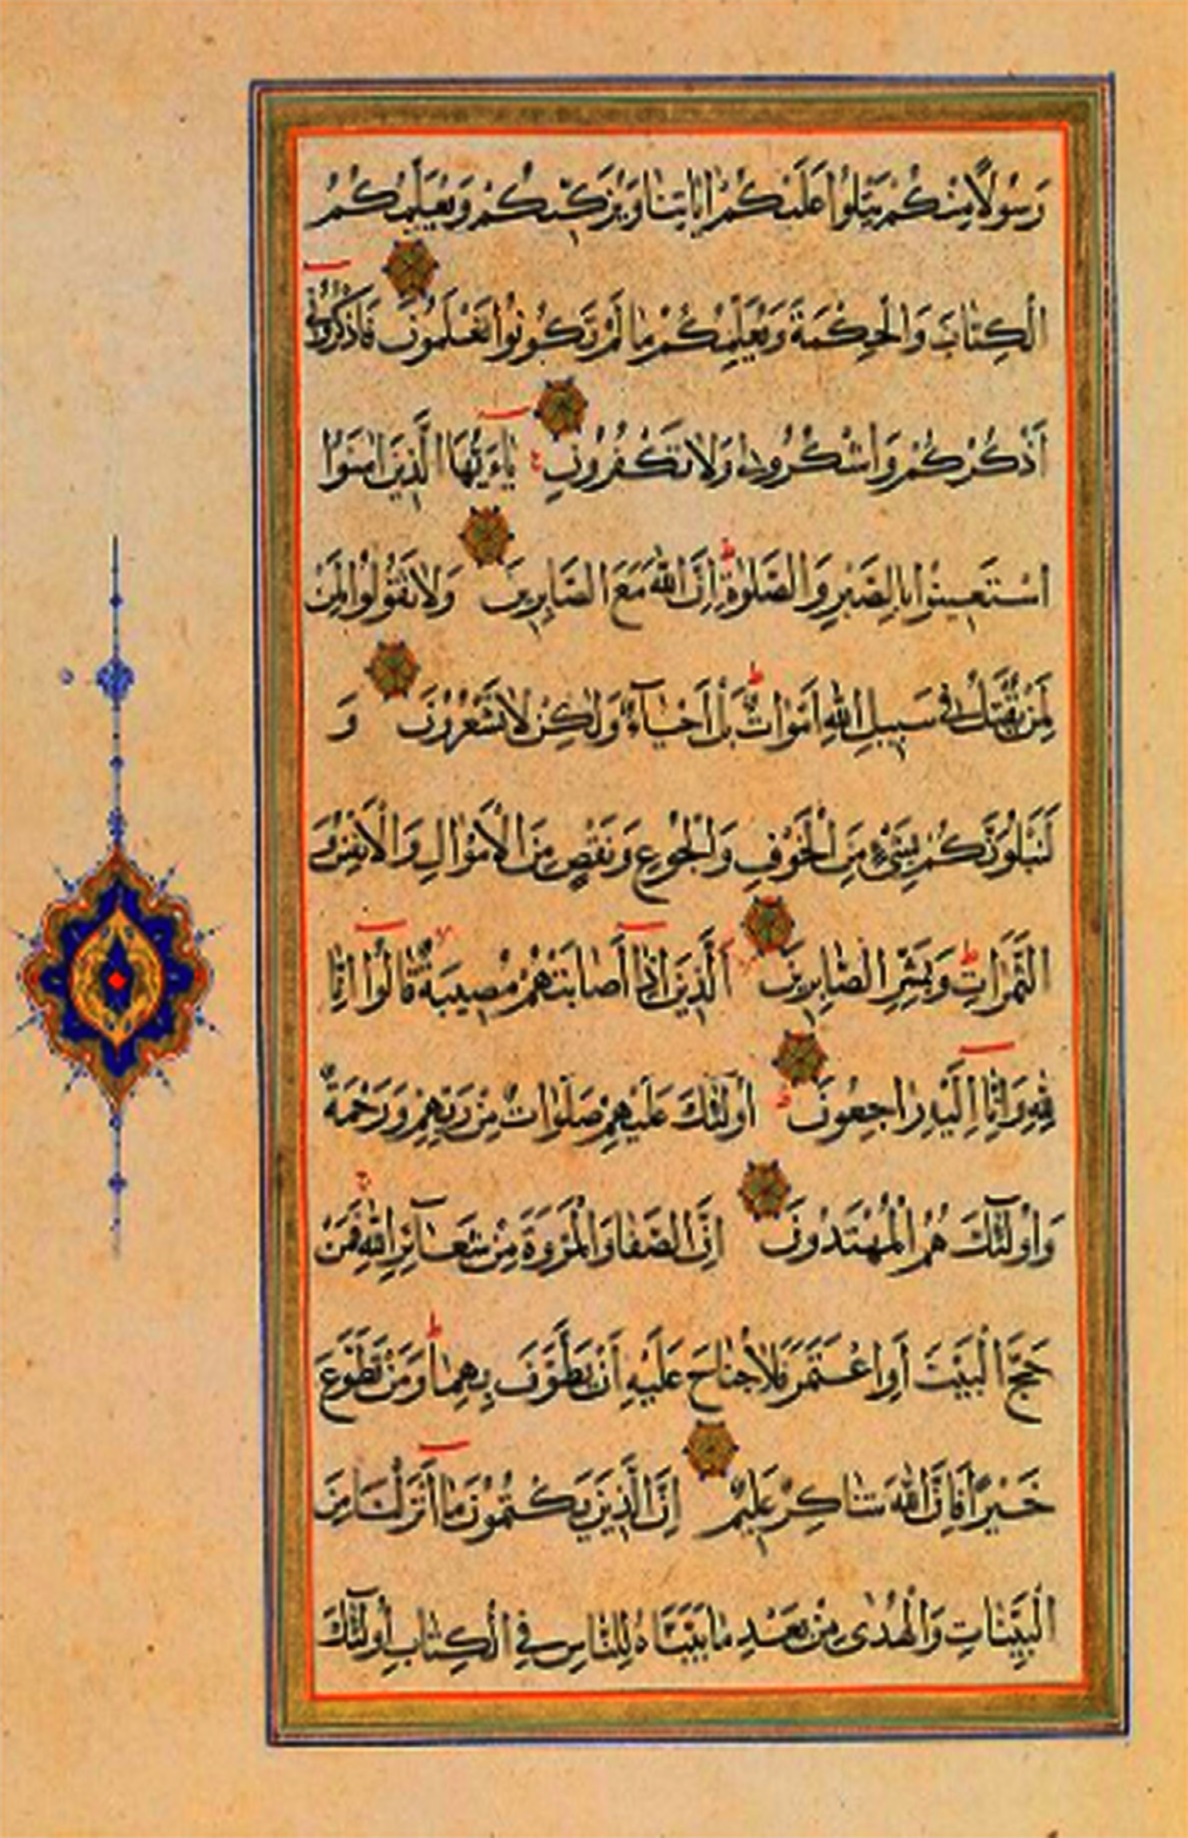 رَسُولًا مِنْكُمْ يَتْلُوا عَلَيْكُمْ اٰيَاتِنَا وَيُزَكّ۪يكُمْ وَيُعَلِّمُكُمُ
الْكِتَابَ وَالْحِكْمَةَ وَيُعَلِّمُكُمْ مَا لَمْ تَكُونُوا تَعْلَمُونَ فَاذْكُرُونٖى
اَذْكُرْكُمْ وَاشْكُرُوا لٖى وَلَا تَكْفُرُونِ يَاءَيُّهَا الَّذٖينَ اٰمَنُوا
اسْتَعٖينُوا بِالصَّبْرِ وَالصَّلٰوةِ اِنَّ اللّٰهَ مَعَ الصَّابِرٖينَ وَلَا تَقُولُوا لِمَنْ
لِمَنْ يُقْتَلُ فٖى سَبٖيلِ اللّٰهِ اَمْوَاتٌ بَلْ اَحْيَآءٌ وَلٰكِنْ لَا تَشْعُرُونَ وَ
لَنَبْلُوَنَّكُمْ بِشَىْءٍ مِنَ الْخَوْفِ وَالْجُوعِ وَنَقْصٍ مِنَ الْاَمْوَالِ وَالْاَنْفُسِ وَ
الثَّمَرَاتِ وَبَشِّرِ الصَّابِرٖينَ اَلَّذٖينَ اِذَا اَصَابَتْهُمْ مُصٖيبَةٌ قَالُوا اِنَّا
لِلّٰهِ وَاِنَّا اِلَيْهِ رَاجِعُونَ اُولٰئِكَ عَلَيْهِمْ صَلَوَاتٌ مِنْ رَبِّهِمْ وَرَحْمَةٌ
وَاُولٰئِكَ هُمُ الْمُهْتَدُونَ اِنَّ الصَّفَا وَالْمَرْوَةَ مِنْ شَعَآئِرِ اللّٰهِ فَمَنْ
حَجَّ الْبَيْتَ اَوِ اعْتَمَرَ فَلَا جُنَاحَ عَلَيْهِ اَنْ يَطَّوَّفَ بِهِمَا وَمَنْ تَطَوَّعَ
خَيْرًا فَاِنَّ اللّٰهَ شَاكِرٌ عَلٖيمٌ اِنَّ الَّذٖينَ يَكْتُمُونَ مَا اَنْزَلْنَا مِنَ
الْبَيِّنَاتِ وَالْهُدٰى مِنْ بَعْدِ مَا بَيَّنَّاهُ لِلنَّاسِ فِى الْكِتَابِ اُولٰئِكَ